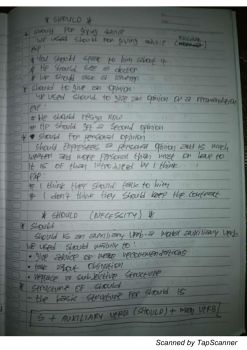 * SHOULD *
* Should for giving advice
We used should for giving advice
EXP
* You should speak to him about it
* He should see a doctor
* We should ask a lawyer
* Should to give an opinion
We used should to give an opinion or a recommendation
EXP
* We should resign now
* He should get a second opinion
* Should for personal opinion
Should expresses a personal opinion and is much
weaker and more personal than must or have to
It is often introduced by I think
EXP
* I think they should talk to him
* I don't think they should keep the contract
* SHOULD (NECESSITY) *
* Should
Should is an auxiliary verb a modal auxiliary verb
We used should mainly to :
• Give advice or make recommendations
• talk about obligation
• replace a subjunctive structure
* Structure of should
• the basic structure for should is
S + AUXILIARY VERB (SHOULD) + MAIN VERB
Scanned by TapScanner